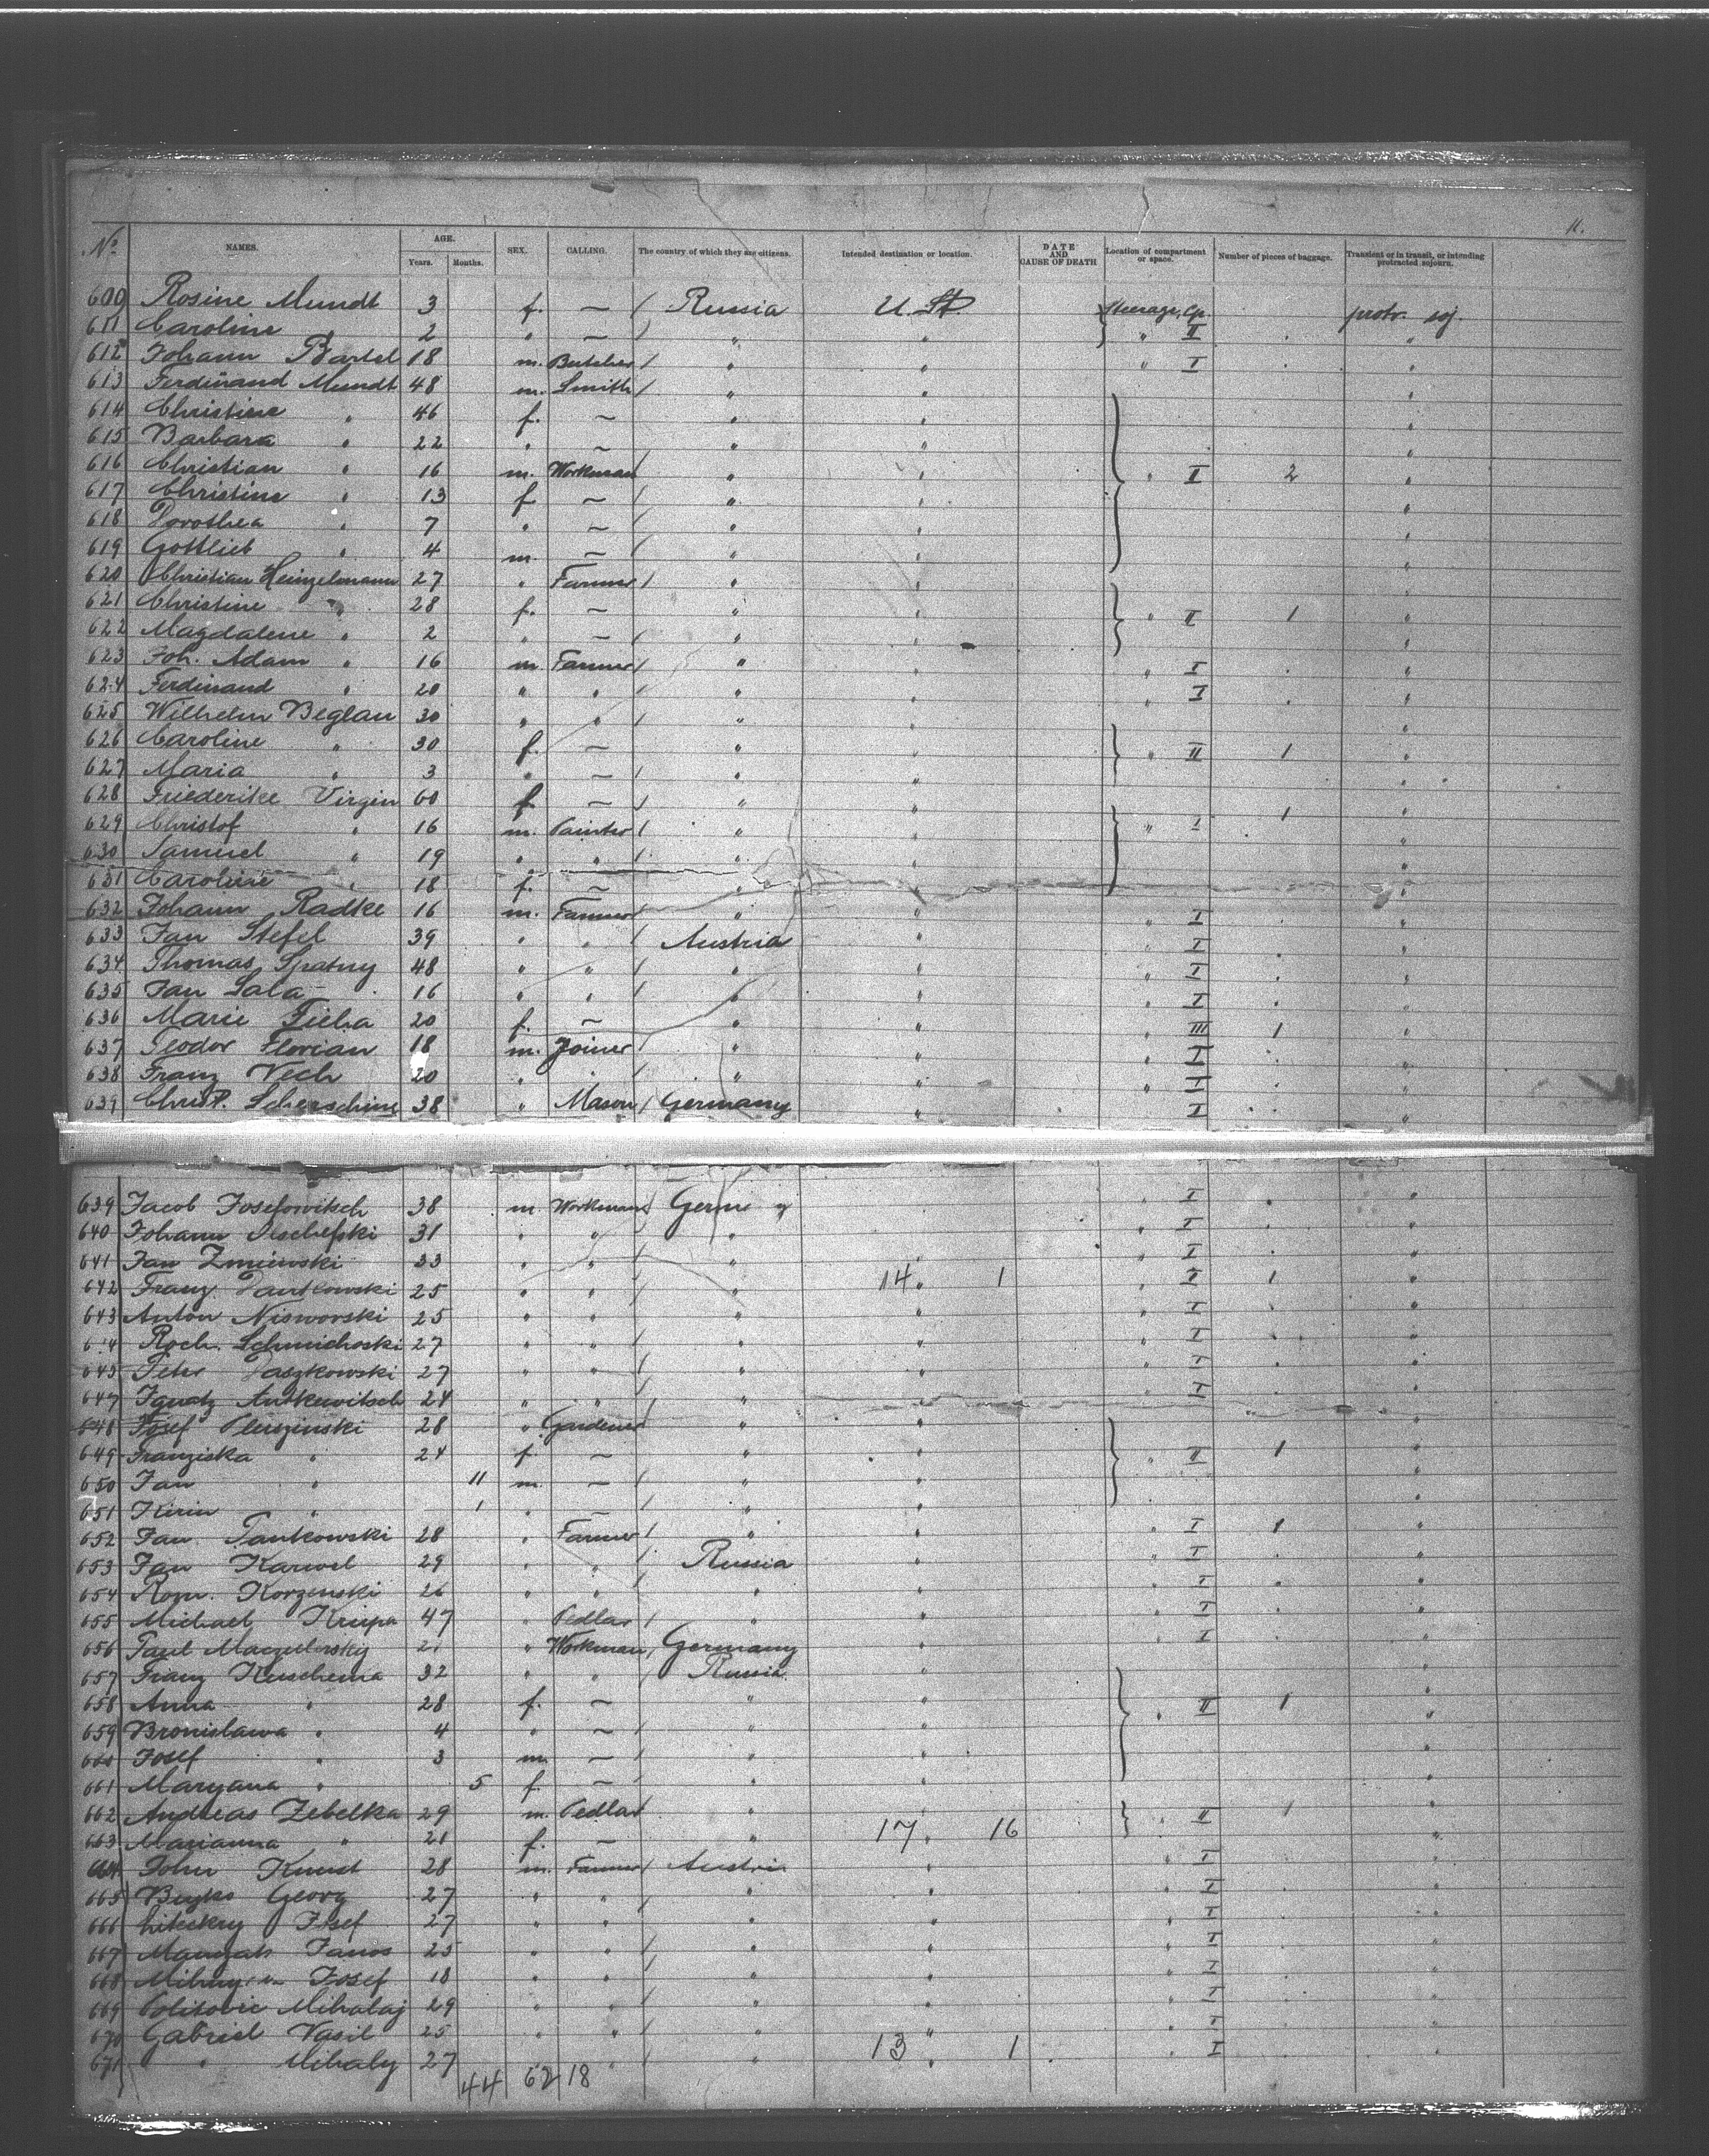 11.
No. NAMES. AGE. Years. Months. SEX. CALLING. The country of which they are citizens. Intended destination or location. DATE AND CAUSE OF DEATH Location of compartment or space. Number of pieces of baggage. Transient or in transit, or intending protracted sojourn.
600 Rosine Mundt 3 f. — / Russia U. St. Steerage protr. soj.
611 Caroline 2 " — / " " " II . "
612 Johann Bartel 18 m. Butcher / " " " I . "
613 Ferdinand Mundt 48 m. Smith / " " "
614 Christine " 46 f. — " " "
615 Barbara " 22 " — " " "
616 Christian " 16 m. Workman " " " II 2 "
617 Christine " 13 f — / " " "
618 Dorothea " 7 " — / " " "
619 Gottlieb " 4 m. — / " " "
620 Christian Heinzelmann 27 " Farmer / " " "
621 Christine " 28 f. — " " " II 1 "
622 Magdalene " 2 " — / " " "
623 Joh. Adam " 16 m. Farmer / " " " I . "
624 Ferdinand " 20 " " / " " " I . "
625 Wilhelm Beglau 30 " " / " " "
626 Caroline " 30 f. — " " " II 1 "
627 Maria " 3 " — / " " "
628 Friederike Virgin 60 f — / " " 1 "
629 Christof " 16 m. Painter / " " " I "
630 Samuel " 19 " " / " " "
631 Caroline " 18 f. — " " "
632 Johann Radke 16 m. Farmer / " " " I . "
633 Jan Stefel 39 " " / Austria " " I . "
634 Thomas Spatny 48 " " / " " " I . "
635 Jan Sala 16 " " / " " " I . "
636 Marie Ficha 20 f. — " " " III 1 "
637 Teodor Florian 18 m. Joiner / " " " I . "
638 Franz Vech 20 " " / " " " I . "
639 Christ. Scherschine 38 " Mason / Germany " I . "
639 Jacob Josefowitsch 38 m Workman / Germ y " I . "
640 Johann 31 " " / " " I . "
641 Jan Zmiewski 33 " " / " " " I . "
642 Franz Pantkowski 25 " " / " 14 " 1 " I 1 "
643 Anton Nisworski 25 " " " " " I . "
64 Roch. Schmichoski 27 " " / " " " I . "
645 Peter Paszkowski 27 " " / " " " I . "
647 Ignatz Antkewitsch 24 " " / " " " I . "
648 Josef Pleiszinski 28 " Gardener / " " "
649 Franziska " 24 f — " " " II 1 "
650 Jan " 11 m. — / " " "
651 " 1 " — / " " "
652 Jan Pantkowski 28 " Farmer / " " " I 1 "
653 Jan Karwel 29 " " / Russia " " I . "
654 Rom. Korzenski 26 " " / " " " I . "
655 Michael Krupa 47 " Pedlar / " " " I . "
656 Paul 21 " Workman / Germany " " I . "
657 Franz Kuschema 32 " " / Russia " "
658 Anna " 28 f. — " " " II 1 "
659 Bronislawa " 4 " — / " " "
660 Josef " 3 m. — / " " "
661 Maryana " 5 f. — / " " "
662 Andreas Zebelka 29 m. Pedlar / " " " II 1 "
663 Marianna " 21 f. — " 17 " 16 "
664 John Kunst 28 m. Farmer / Austria " " I . "
665 Buyko Georg 27 " " / " " " I . "
666 Josef 27 " " / " " " I . "
667 Janos 25 " " / " " " I . "
668 Josef 18 " " / " " " I . "
669 Politovic Mihalaj 29 " " / " " " I . "
670 Gabriel Vasil 25 " " / " " " I . "
671 " Mihaly 27 " / " 13 " 1 I . "
44 62 18